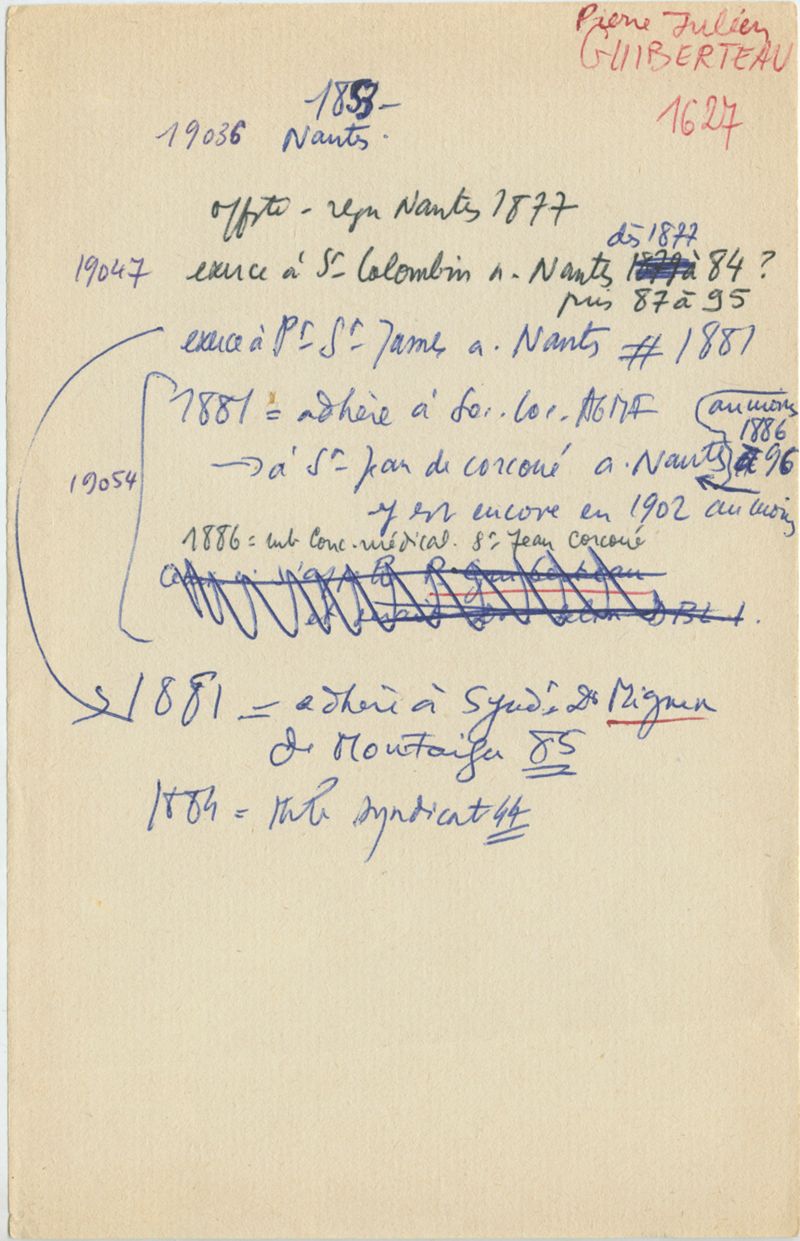 Pierre Julien
GUIBERTEAU
1627
1853 -
19036 Nantes.
offste - reçu Nantes 1877
dès 1877
19047 exerce à St Colombin a. Nantes 1879 à 84 ?
puis 87 à 95
exerce à Pt St James a. Nantes # 1881
1881 = adhère à Soc. loc. AGMF
au moins
1886
à 96
→ à St Jean de corcoué a. Nantes
19054
y est encore en 1902 au moins
1886 = mb Conc. médical. St Jean Corcoué
1881 = adhère à Synd. Dr Mignen
de Montaigu 85
1884 = Mb syndicat 44